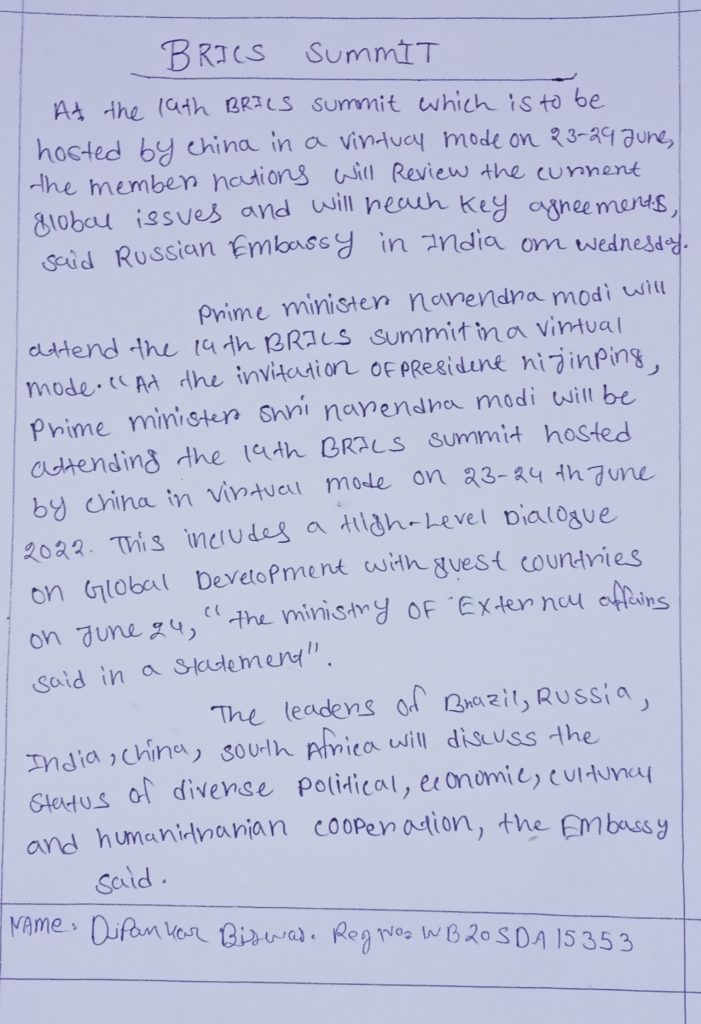 BRICS SUMMIT
At the 14th BRICS summit which is to be
hosted by china in a virtual mode on 23-24 June,
the member nations will Review the current
global issues and will reach key agreements,
said Russian Embassy in India om wednesday.
Prime minister narendra modi will
attend the 14th BRICS summit in a virtual
mode. "At the invitation OF PResident nijinping,
Prime minister shri narendra modi will be
attending the 14th BRICS summit hosted
by china in virtual mode on 23-24 th June
2022. This includes a High-Level Dialogue
on Global Development with guest countries
on June 24, "the ministry OF External affairs
said in a statement".
The leaders of Brazil, Russia,
India, china, south Africa will discuss the
status of diverse political, economic, cultural
and humanitrarian cooperation, the Embassy
said.
NAme: Dipankar Biswas. Reg No: WB20SDA15353